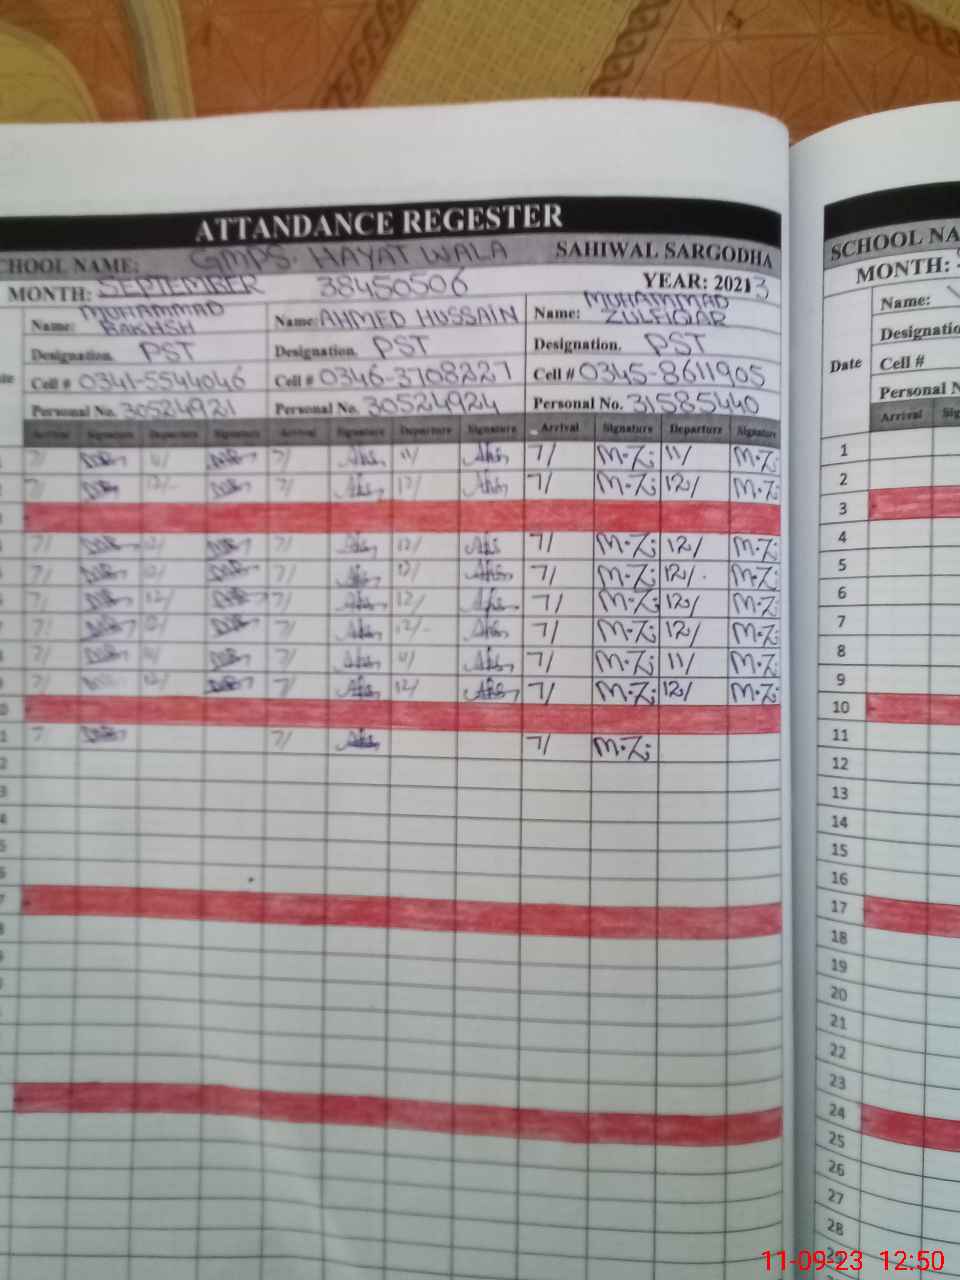 ATTANDANCE REGESTER
CHOOL NAME: GMPS. HAYAT WALA SAHIWAL SARGODHA
MONTH: SEPTEMBER 38450506 YEAR: 20213
Name: MUHAMMAD BAKHSH Name: AHMED HUSSAIN Name: MUHAMMAD ZULFIQAR
Designation. PST Designation. PST Designation. PST
Cell # 0341-5544046 Cell # 0346-3708227 Cell # 0345-8611905
Personal No. 30524921 Personal No. 30524924 Personal No. 31585440
Arrival Signature Departure Signature Arrival Signature Departure Signature Arrival Signature Departure Signature
7/ 11/ 7/ 11/ 7/ M.Z; 11/ M.Z;
7/ 12/- 7/ 12/ 7/ M.Z; 12/ M.Z;
7/ 12/ 7/ 12/ 7/ M.Z; 12/ M.Z;
7/ 12/ 7/ 12/ 7/ M.Z; 12/. M.Z;
7/ 12/ 7/ 12/ 7/ M.Z; 12/ M.Z;
7/ 12/ 7/ 12/- 7/ M.Z; 12/ M.Z;
7/ 11/ 7/ 11/ 7/ M.Z; 11/ M.Z;
7/ 12/ 7/ 12/ 7/ M.Z; 12/ M.Z;
7/ 7/ 7/ M.Z;
SCHOOL NA
MONTH:
Name:
Designatio
Date Cell #
Personal N
Arrival Sig
1
2
3
4
5
6
7
8
9
10
11
12
13
14
15
16
17
18
19
20
21
22
23
24
25
26
27
28
29
11-09-23 12:50